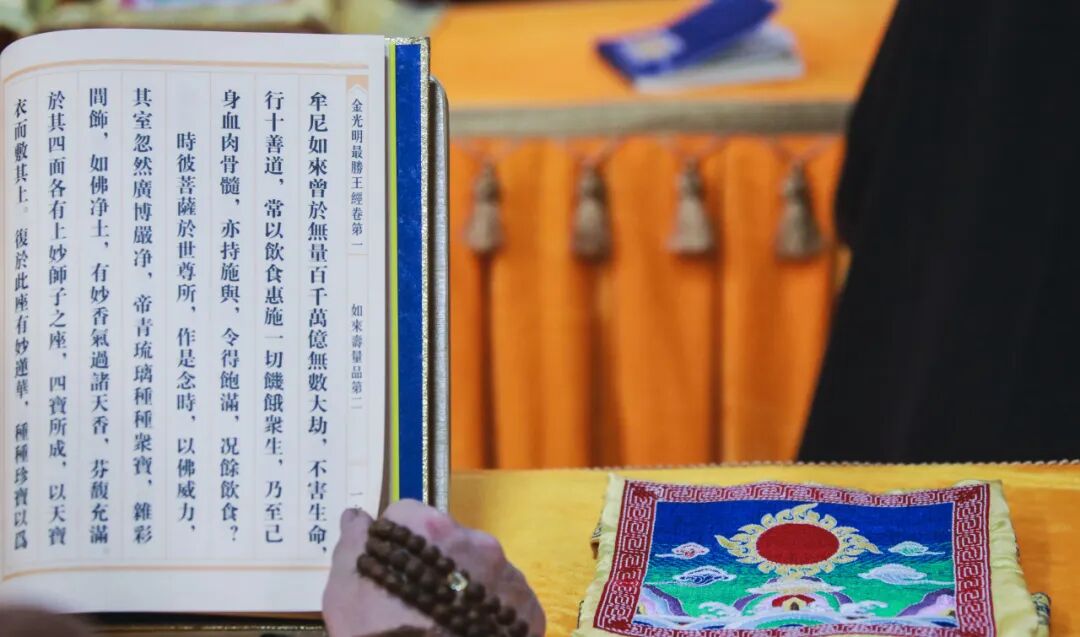 金光明最勝王經卷第一
如來壽量品第二
牟尼如來曾於無量百千萬億無數大劫，不害生命，
行十善道，常以飲食惠施一切饑餓衆生，乃至己
身血肉骨髓，亦持施與，令得飽滿，況餘飲食？
時彼菩薩於世尊所，作是念時，以佛威力，
其室忽然廣博嚴净，帝青琉璃種種衆寶，雜彩
間飾，如佛净土，有妙香氣過諸天香，芬馥充滿。
於其四面各有上妙師子之座，四寶所成，以天寶
衣而敷其上。復於此座有妙蓮華，種種珍寶以爲